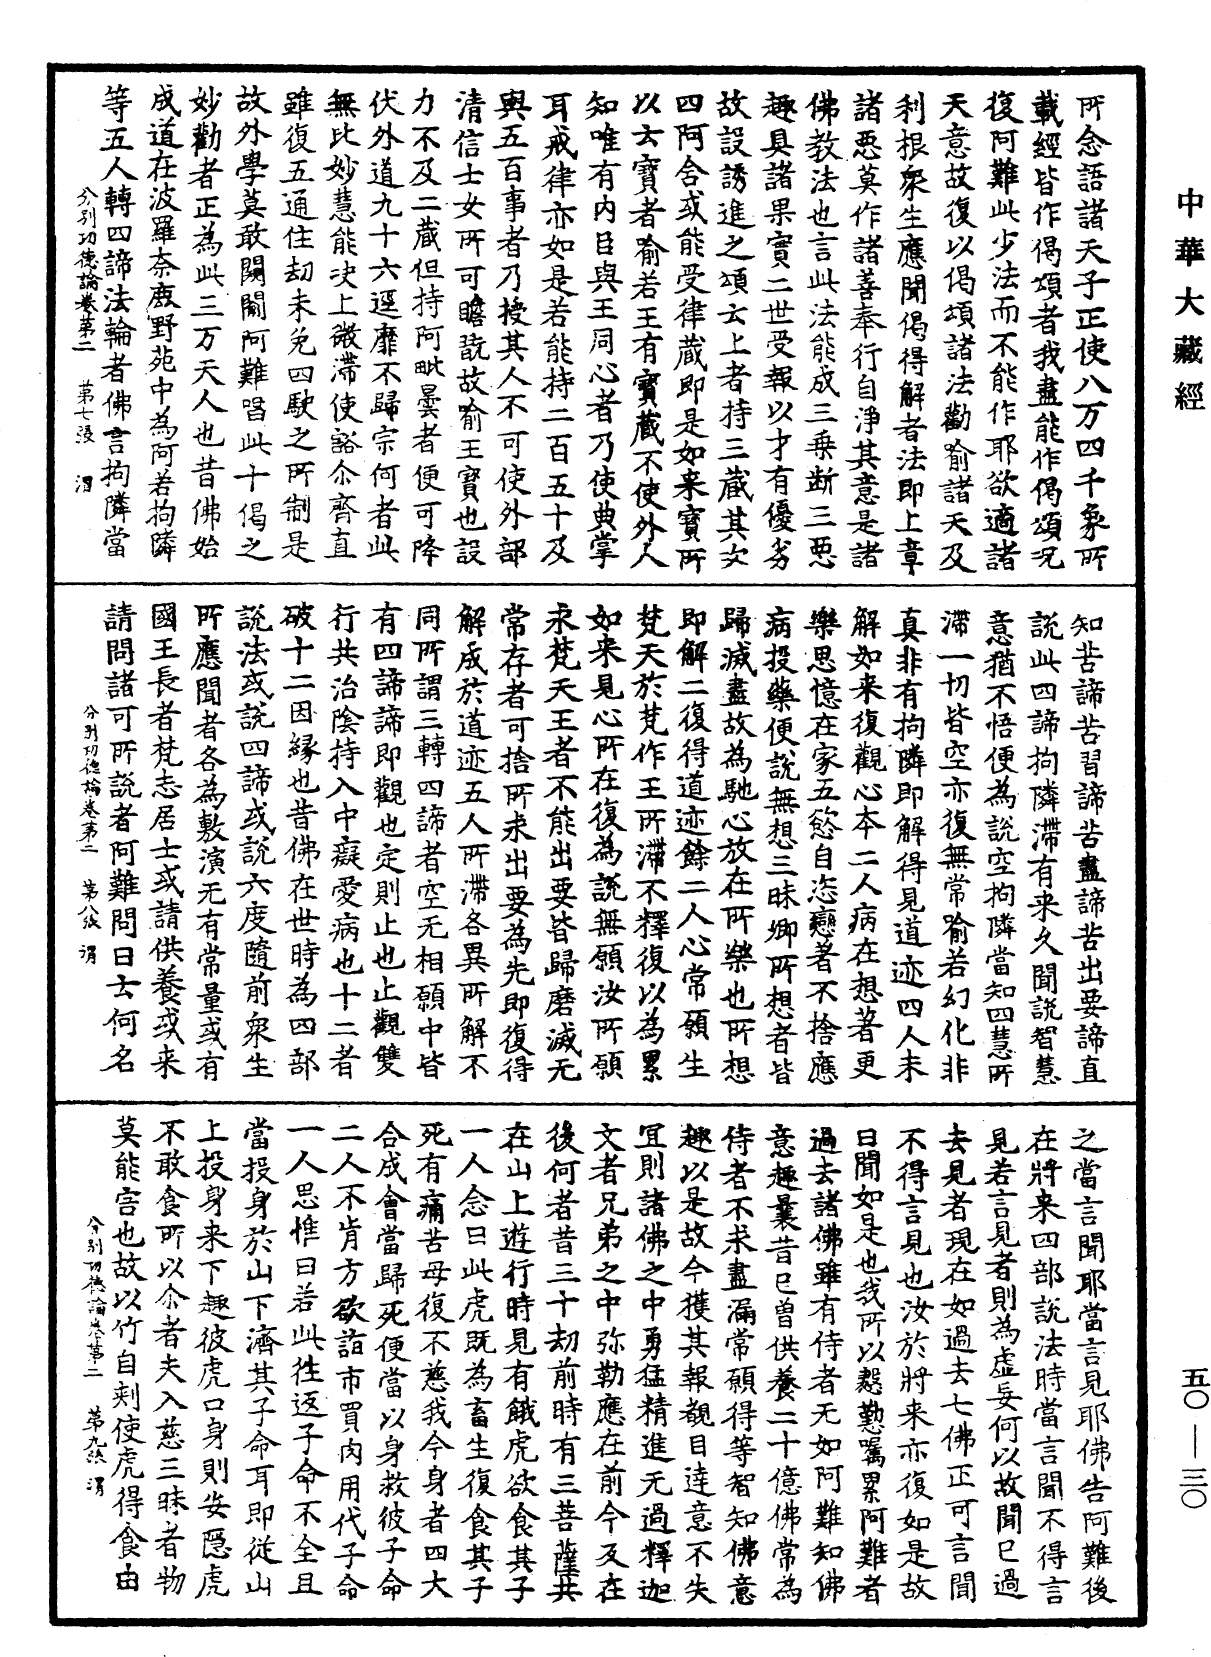 中華大藏經
所念語諸天子正使八万四千象所
載經皆作偈頌者我盡能作偈頌况
復阿難此少法而不能作耶欲適諸
天意故復以偈頌諸法勸喻諸天及
利根衆生應聞偈得解者法即上章
諸惡莫作諸善奉行自淨其意是諸
佛教法也言此法能成三乘断三惡
趣具諸果實二世受報以才有優劣
故設誘進之頌云上者持三藏其次
四阿含或能受律藏即是如来寶所
以云寶者喻若王有寶藏不使外人
知唯有内臣與王同心者乃使典掌
耳戒律亦如是若能持二百五十及
與五百事者乃授其人不可使外部
清信士女所可瞻翫故喻王寶也設
力不及二藏但持阿毗曇者便可降
伏外道九十六逕靡不歸宗何者此
無比妙慧能决上微滯使豁尒齊直
雖復五通住劫未免四駛之所制是
故外學莫敢闚𨵦阿難唱此十偈之
妙勸者正為此三万天人也昔佛始
成道在波羅奈鹿野苑中為阿若拘隣
等五人轉四諦法輪者佛言拘隣當
分别功德論卷第二　第七張　渭
知苦諦苦習諦苦盡諦苦出要諦直
說此四諦拘隣滯有来久聞說智慧
意猶不悟便為說空拘隣當知四慧所
滯一切皆空亦復無常喻若幻化非
真非有拘隣即解得見道迹四人未
解如来復觀心本二人病在想著更
樂思憶在家五慾自恣戀著不捨應
病投藥便說無想三昧卿所想者皆
歸滅盡故為馳心放在所樂也所想
即解二復得道迹餘二人心常願生
梵天於梵作王所滯不釋復以為累
如来見心所在復為說無願汝所願
求梵天王者不能出要皆歸磨滅无
常存者可捨所求出要為先即復得
解成於道迹五人所滯各異所解不
同所謂三轉四諦者空无相願中皆
有四諦諦即觀也定則止也止觀雙
行共治陰持入中癡愛病也十二者
破十二因緣也昔佛在世時為四部
說法或說四諦或說六度隨前衆生
所應聞者各為敷演无有常量或有
國王長者梵志居士或請供養或来
請問諸可所說者阿難問曰云何名
分别功德論卷第二　第八張　渭
之當言聞耶當言見耶佛告阿難後
在將来四部說法時當言聞不得言
見若言見者則為虛妄何以故聞已過
去見者現在如過去七佛正可言聞
不得言見也汝於將来亦復如是故
曰聞如是也我所以慇懃囑累阿難者
過去諸佛雖有侍者无如阿難知佛
意趣曩昔已曾供養二十億佛常為
侍者不求盡漏常願得等智知佛意
趣以是故今獲其報覩目達意不失
冝則諸佛之中勇猛精進无過釋迦
文者兄弟之中弥勒應在前今反在
後何者昔三十劫前時有三菩薩共
在山上遊行時見有餓虎欲食其子
一人念曰此虎既為畜生復食其子
死有痛苦母復不慈我今身者四大
合成會當歸死便當以身救彼子命
二人不肯方欲詣市買肉用代子命
一人思惟曰若此往返子命不全且
當投身於山下濟其子命耳即從山
上投身来下趣彼虎口身則安隱虎
不敢食所以尒者夫入慈三昧者物
莫能害也故以竹自刺使虎得食由
分别功德論卷第二　第九張　渭
五〇——三〇